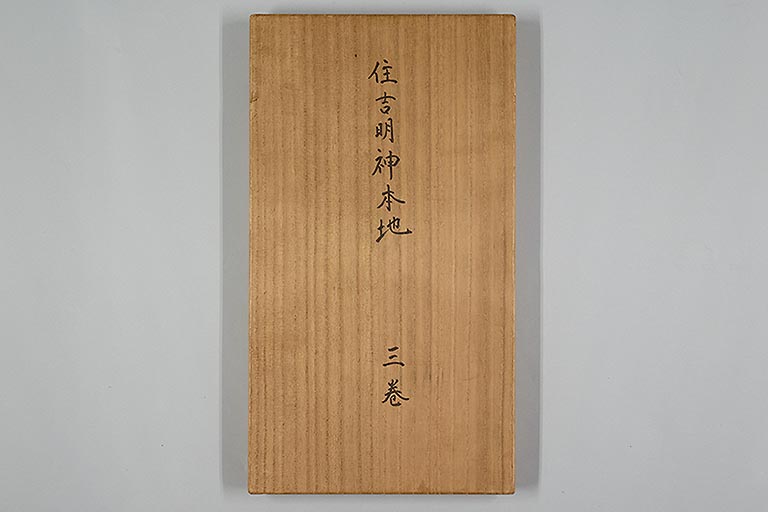 住吉明神本地　三巻